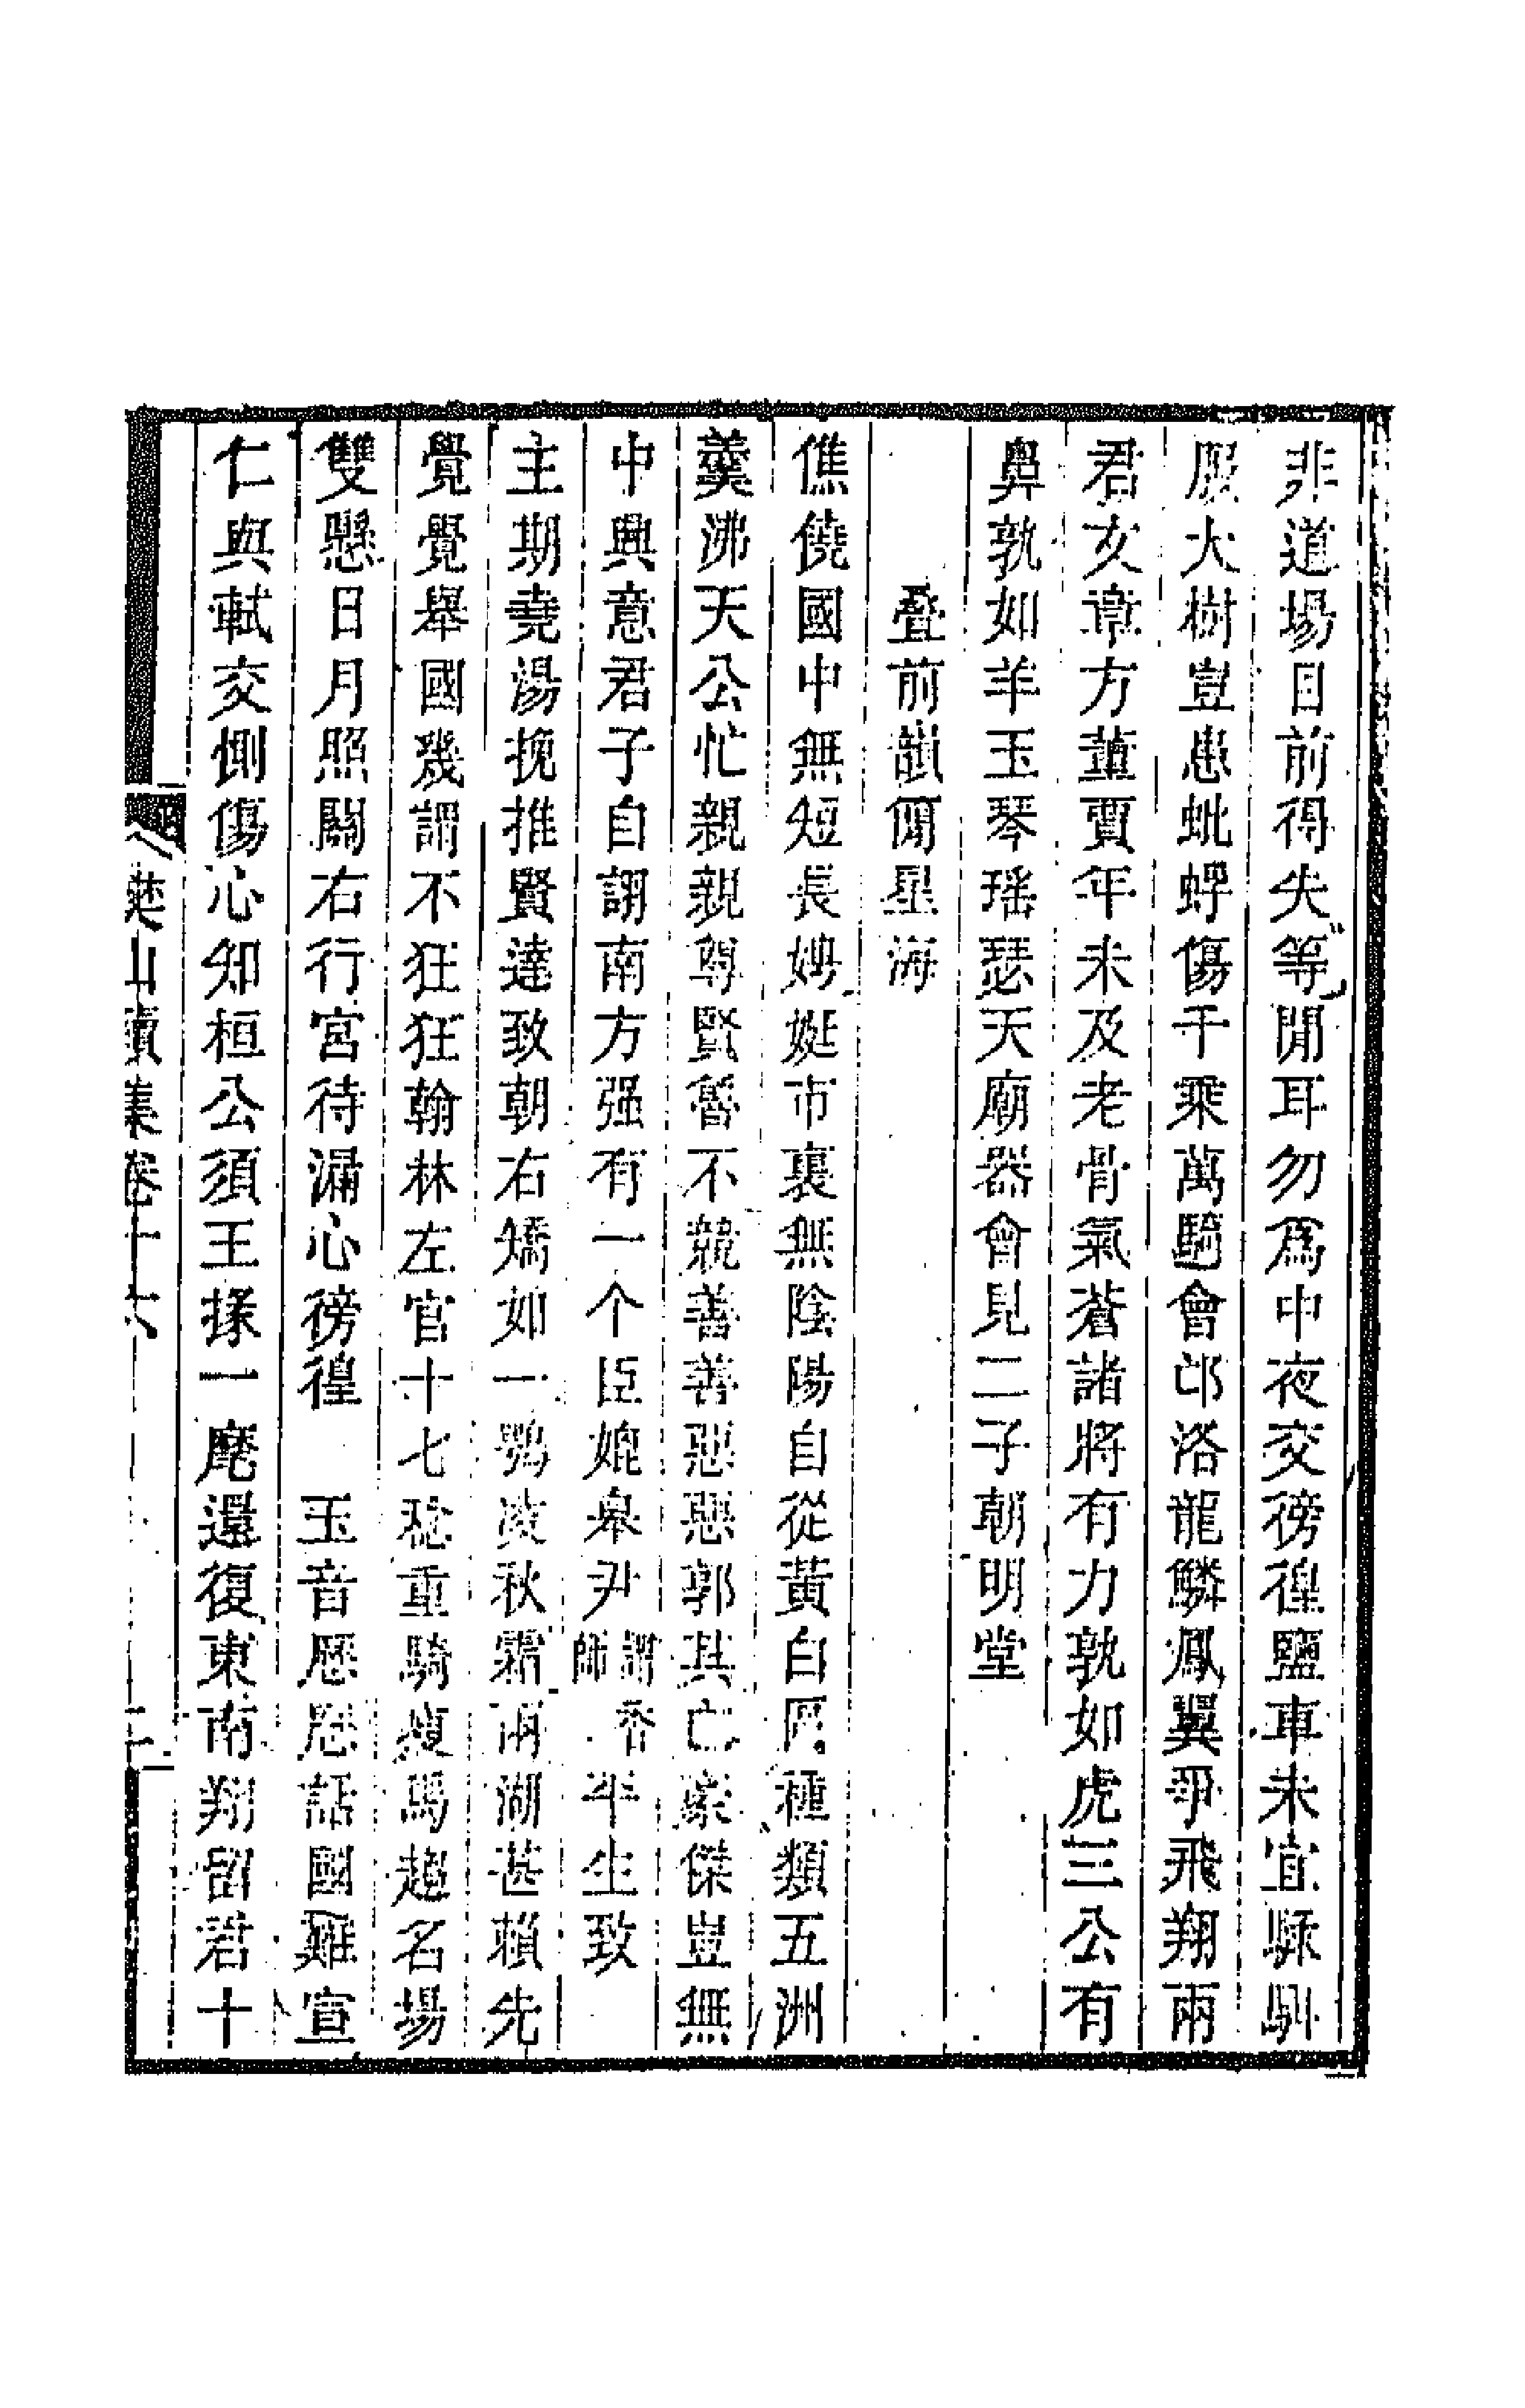 非道場目前得失等閒耳勿爲中夜交徬徨鹽車未宜驂馴
服大樹豈患蚍蜉傷千乘萬騎會邙洛龍鱗鳳翼爭飛翔兩
君文章方董賈年未及老骨氣蒼諸將有力孰如虎三公有
鼻孰如羊玉琴瑤瑟天廟器會見二子朝明堂
叠前韻簡星海
僬僥國中無短長娉婷市裏無陰陽自從黃白區種類五洲
羹沸天公忙親親尊賢魯不競善善惡惡郭其亡豪傑豈無
中興意君子自詡南方强有一个臣媲皋尹謂香師半生致
主期堯湯挽推賢達致朝右矯如一鶚凌秋霜兩湖甚賴先
覺覺舉國幾謂不狂狂翰林左官十七稔重騎瘦馬趨名場
雙懸日月照關右行宮待漏心徬徨　玉音慰話國難宣
仁與軾交惻傷心知桓公須王掾一麾還復東南翔留君十
樊山續集卷十六　二